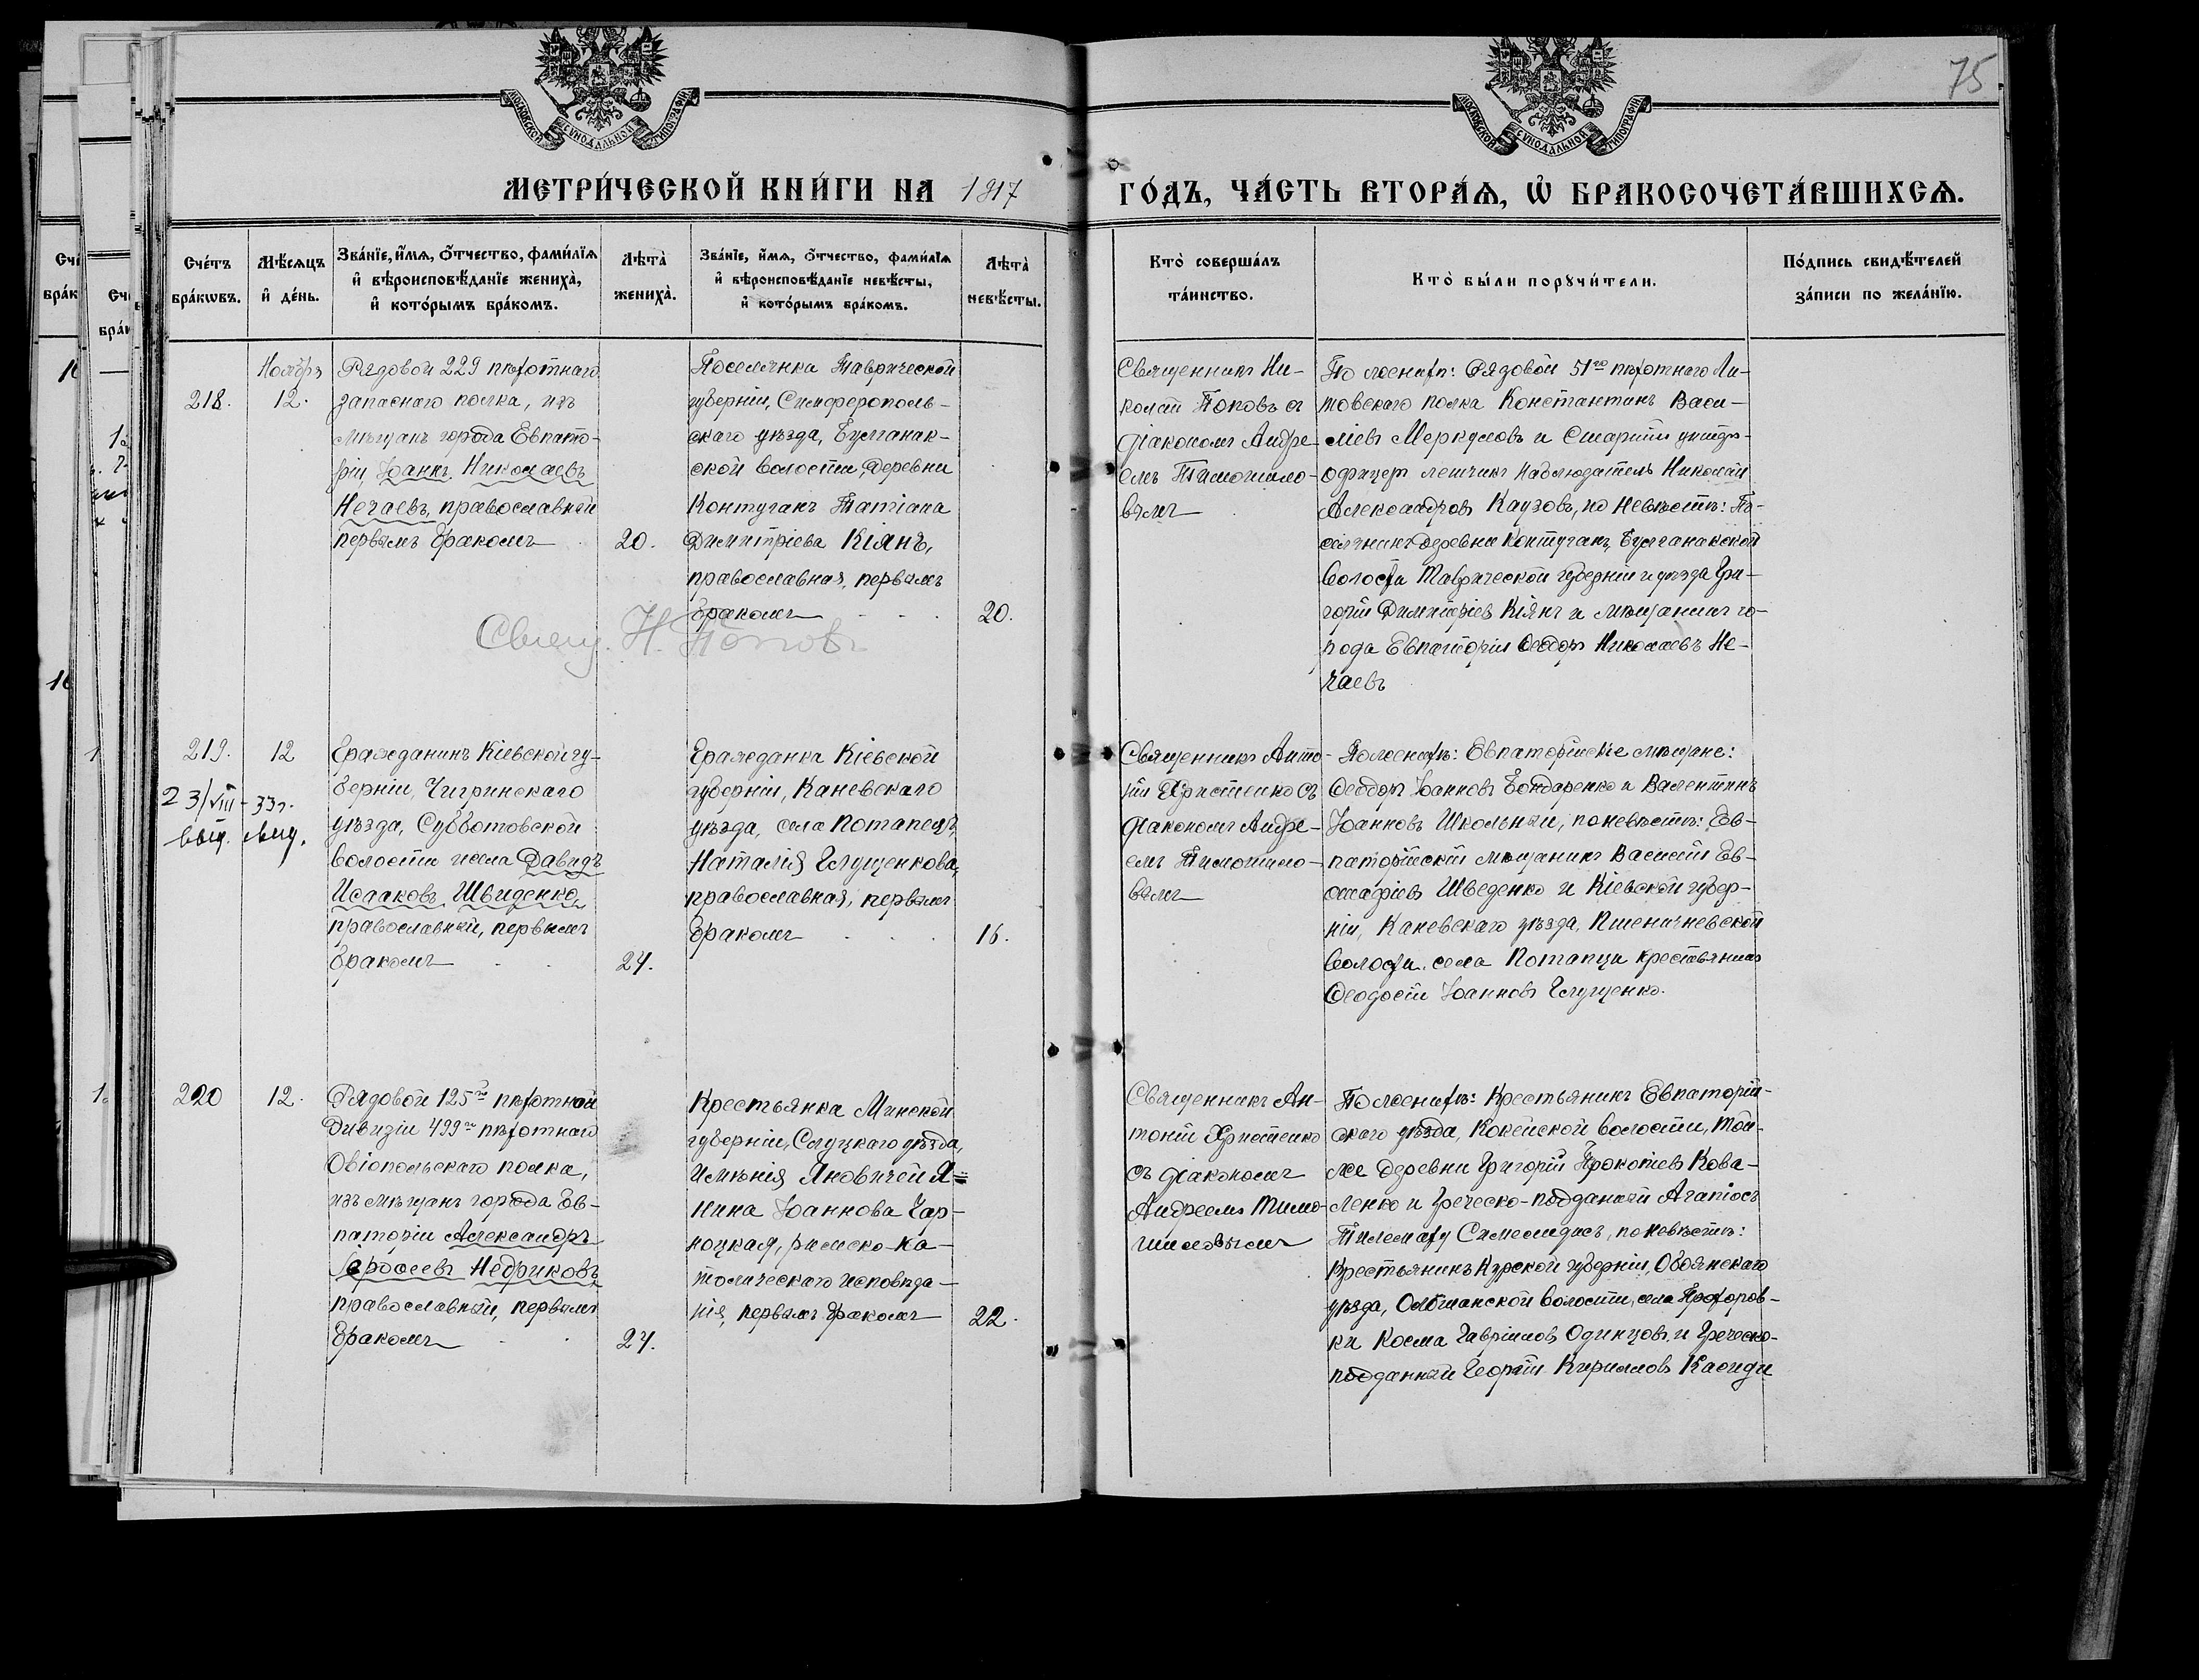 75
МОСКОВСКОЙ СУНОДАЛЬНОЙ ТИПОГРАФІИ
МОСКОВСКОЙ СУНОДАЛЬНОЙ ТИПОГРАФІИ
МЕТРИ́ЧЕСКОЙ КНИ́ГИ НА 1917
ГО́ДЪ, ЧА́СТЬ ВТОРА́Ѧ, Ѡ БРАКОСОЧЕТА́ВШИХСѦ.
Сче́тъ
бра́кѡвъ.
Мѣ́сяцъ
и де́нь.
Зва́нїе, и́мѧ, о́тчество, фами́лїѧ
и вѣроисповѣ́данїе жениха̀,
и кото́рымъ бра́комъ.
Лѣта̀
жениха̀.
Зва́нїе, и́мѧ, о́тчество, фами́лїѧ
и вѣроисповѣ́данїе невѣ́сты,
и кото́рымъ бра́комъ.
Лѣта̀
невѣ́сты.
Кто̀ соверша́лъ
та́инство.
Кто̀ бы́ли порꙋчи́тели.
По́дпись свидѣ́телей
за́писи по жела́нїю.
218.
Ноябрь
12.
Рядовой 229 пѣхотнаго
запаснаго полка, изъ
мѣщанъ города Евпато-
ріи, Іоаннъ Николаевъ
Нечаевъ, православный
первымъ бракомъ
20.
Поселянка Таврической
губерніи, Симферополь-
скаго уѣзда, Булганак-
ской волости, деревни
Контуганъ Татіана
Димитріева Кіянъ,
православная, первымъ
бракомъ
20.
Свящ. Н. Поповъ
Священникъ Ни-
колай Поповъ съ
діакономъ Андре-
емъ Тимошило-
вымъ
По женихѣ: Рядовой 51го пѣхотнаго Ли-
товскаго полка Константинъ Васи-
ліевъ Меркуловъ и Старшій унтеръ-
офицеръ летчикъ наблюдатель Николай
Александровъ Каузовъ, по невѣстѣ: По-
селянинъ деревни Контуганъ, Булганакской
волости Таврической губерніи и уѣзда Гри-
горій Димитріевъ Кіянъ и мѣщанинъ го-
рода Евпаторіи Ѳеодоръ Николаевъ Не-
чаевъ
219.
12
23/VIII-33г.
выд.
Гражданинъ Кіевской гу-
берніи, Чигринскаго
уѣзда, Субботовской
волости и села Давидъ
Исааковъ Швиденко,
православный, первымъ
бракомъ
24.
Гражданка Кіевской
губерніи, Каневскаго
уѣзда, села Потапецъ
Наталія Глущенкова,
православная, первымъ
бракомъ
16.
Священникъ Анто-
ній Христенко съ
діакономъ Андре-
емъ Тимошило-
вымъ
По женихѣ: Евпаторійскіе мѣщане:
Ѳеодоръ Іоанновъ Бондаренко и Валентинъ
Іоанновъ Школьный, по невѣстѣ: Ев-
паторійскій мѣщанинъ Василій Ев-
стафіевъ Шведенко и Кіевской губер-
ніи, Каневскаго уѣзда, Пшеничневской
волости, села Потапци крестьянинъ
Ѳеодосій Іоанновъ Глущенко.
220
12.
Рядовой 125й пѣхотной
дивизіи 499го пѣхотнаго
Овіопольскаго полка,
изъ мѣщанъ города Ев-
паторіи Александръ
Іероѳеевъ Недриковъ,
православный, первымъ
бракомъ
24.
Крестьянка Минской
губерніи, Слуцкаго уѣзда,
имѣнія Яновичей Я=
нина Іоаннова Чар-
ноцкая, римско-ка-
толическаго исповѣда-
нія, первымъ бракомъ
22.
Священникъ Ан-
тоній Христенко
съ діакономъ
Андреемъ Тимо-
шиловымъ
По женихѣ: Крестьянинъ Евпаторій-
скаго уѣзда, Кокейской волости, той-
же деревни Григорій Прокопіевъ Кова-
ленко и Греческо-подданный Агапіосъ
Тилемаху Симеонидисъ, по невѣстѣ:
Крестьянинъ Курской губерніи, Обоянскаго
уѣзда, Олбшанской волости, села Прохоров-
ки Косма Гавріиловъ Одинцовъ и Греческо-
подданный Георгій Кирилловъ Касиди